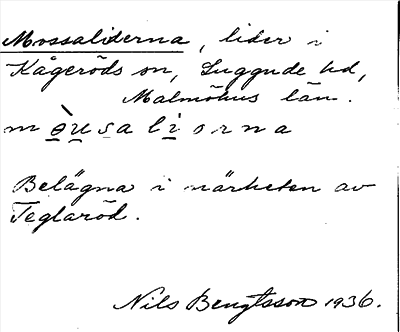 Mossaliderna, lider i
Kågeröds sn, Luggude hd,
Malmöhus län.
m ò̤ṳs̤a l i̤ o r n a
Belägna i närheten av
Teglaröd.
Nils Bengtsson 1936.